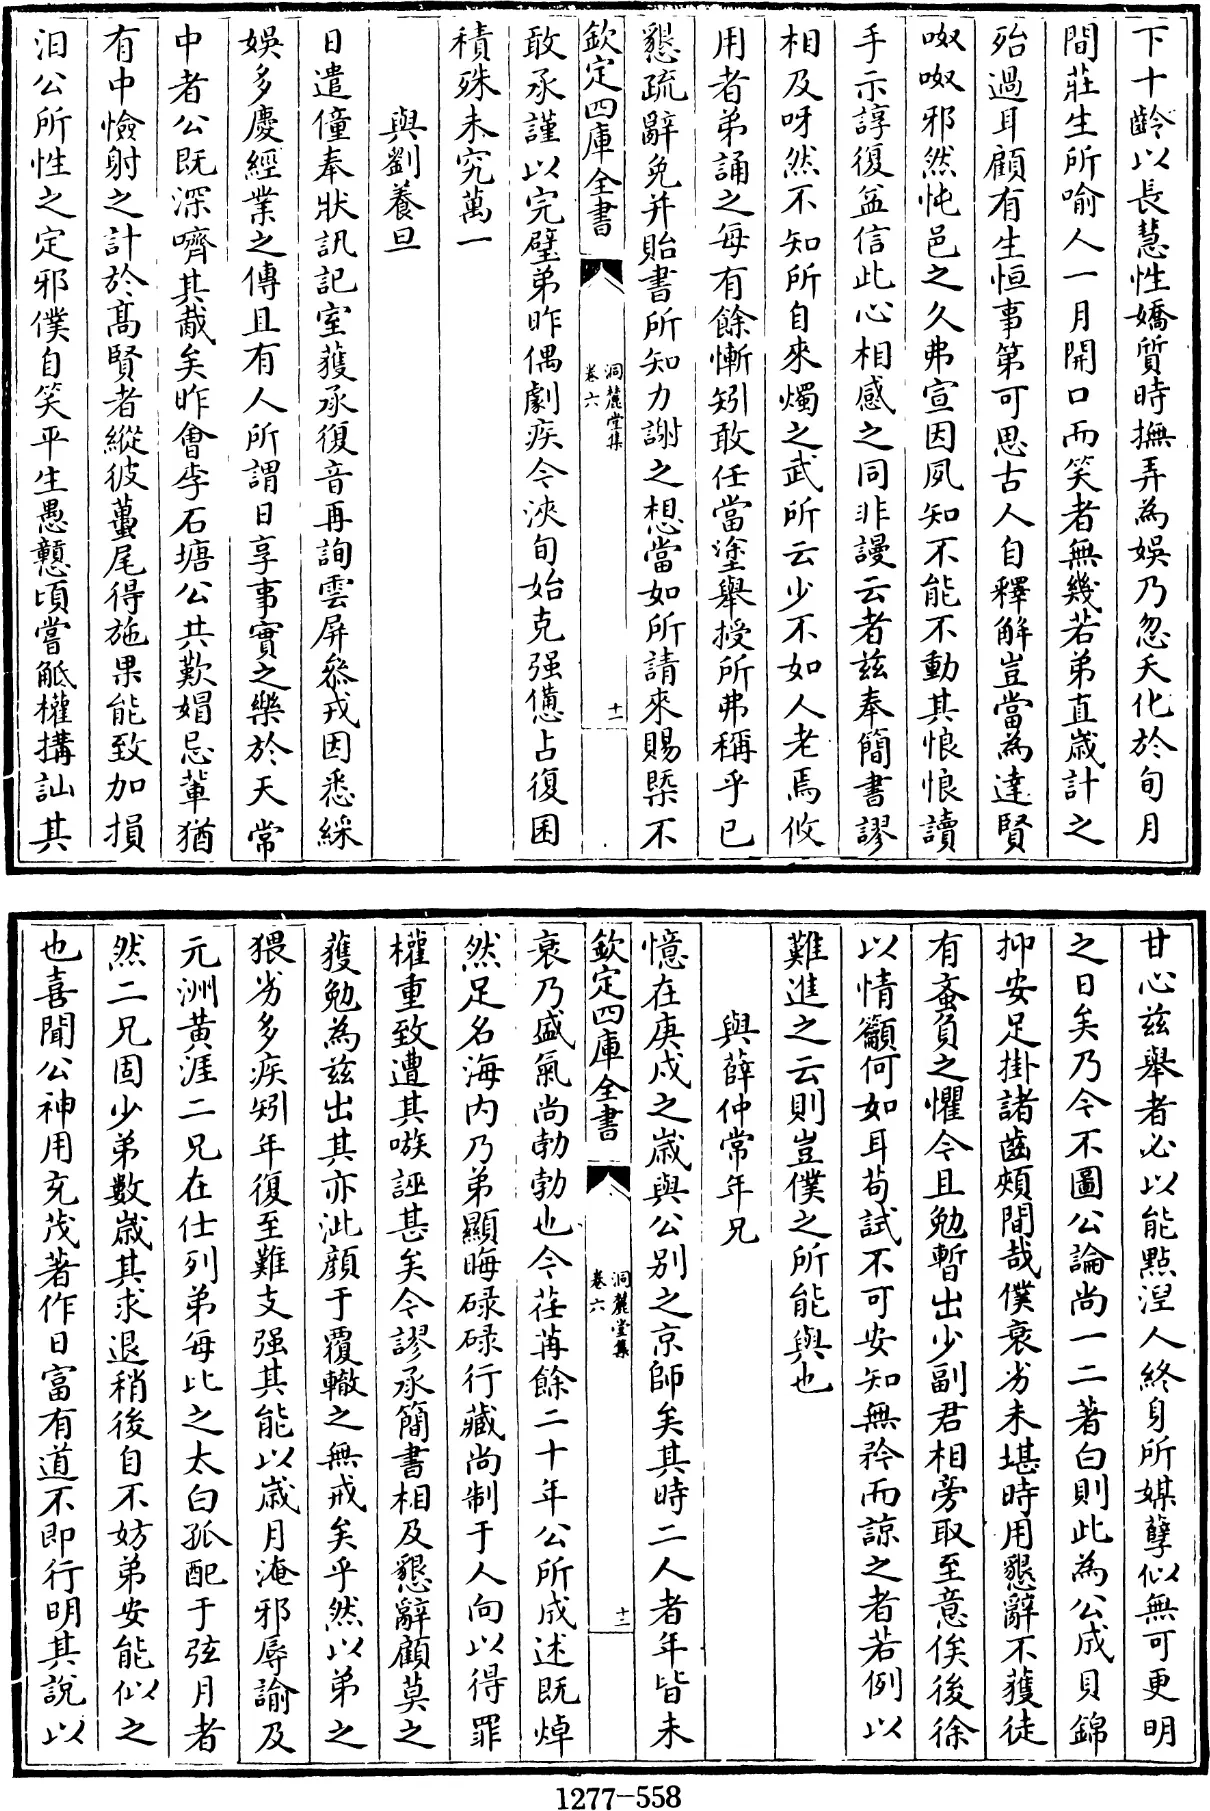 下十齡以長慧性嬌質時撫弄為娛乃忽夭化於旬月
間莊生所喻人一月開口而笑者無幾若弟直歲計之
殆過耳顧有生恒事第可思古人自釋解豈當為達賢
呶呶邪然忳邑之久弗宣因夙知不能不動其悢悢讀
手示諄復益信此心相感之同非謾云者茲奉簡書謬
相及呀然不知所自來燭之武所云少不如人老焉攸
用者弟誦之每有餘慚矧敢任當塗舉授所弗稱乎已
懇疏辭免并貽書所知力謝之想當如所請來賜槩不
欽定四庫全書
洞麓堂集
卷六
十一
敢承謹以完璧弟昨偶劇疾今浹旬始克强憊占復困
積殊未究萬一
與劉養旦
日遣僮奉狀訊記室獲承復音再詢雲屏叅戎因悉綵
娛多慶經業之傳且有人所謂日享事實之樂於天常
中者公既深嚌其胾矣昨會李石塘公共歎媢忌輩猶
有中憸射之計於髙賢者縱彼蠆尾得施果能致加損
汨公所性之定邪僕自笑平生愚戇頃嘗觝權搆訕其
甘心茲舉者必以能點湼人終身所媒孽似無可更明
之日矣乃今不圖公論尚一二著白則此為公成貝錦
抑安足掛諸齒頰間哉僕衰劣未堪時用懇辭不獲徒
有蚉負之懼今且勉暫出少副君相旁取至意俟後徐
以情籲何如耳苟試不可安知無矜而諒之者若例以
難進之云則豈僕之所能與也
與薛仲常年兄
憶在庚戌之歲與公别之京師矣其時二人者年皆未
欽定四庫全書
洞麓堂集
卷六
十二
衰乃盛氣尚勃勃也今荏苒餘二十年公所成述既焯
然足名海内乃弟顯晦碌碌行藏尚制于人向以得罪
權重致遭其嗾誣甚矣今謬承簡書相及懇辭顧莫之
獲勉為茲出其亦泚顔于覆轍之無戒矣乎然以弟之
猥劣多疾矧年復至難支强其能以歲月淹邪辱諭及
元洲黄涯二兄在仕列弟每比之太白孤配于弦月者
然二兄固少弟數歲其求退稍後自不妨弟安能似之
也喜聞公神用充茂著作日富有道不即行明其說以
1277-558